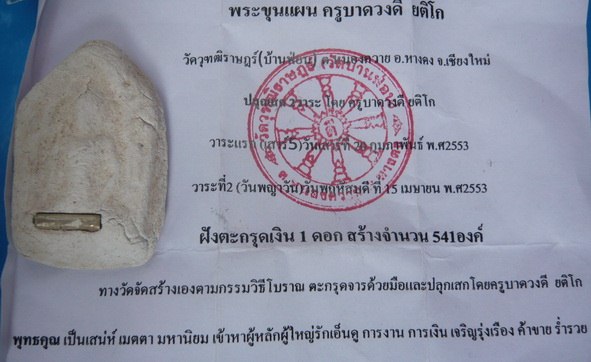 พระขุนแผน ครูบาดวงดี ยติโก
วัดวุฑฒิราษฎร์(บ้านฟ่อน) ต.หนองควาย อ.หางดง จ.เชียงใหม่
ปลุกเสก 2วาระ โดย ครูบาดวงดี ยติโก
วาระแรก (เสาร์5)วันเสาร์ที่ 20 กุมภาพันธ์ พ.ศ2553
วาระที่2 (วันพญาวัน)วันพฤหัสบดี ที่ 15 เมษายน พ.ศ2553
ฝังตะกรุดเงิน 1 ดอก สร้างจำนวน 541องค์
ทางวัดจัดสร้างเองตามกรรมวิธีโบราณ ตะกรุดจารด้วยมือและปลุกเสกโดยครูบาดวงดี ยติโก
พุทธคุณ เป็นเสน่ห์ เมตตา มหานิยม เข้าหาผู้หลักผู้ใหญ่รักเอ็นดู การงาน การเงิน เจริญรุ่งเรือง ค้าขาย ร่ำรวย